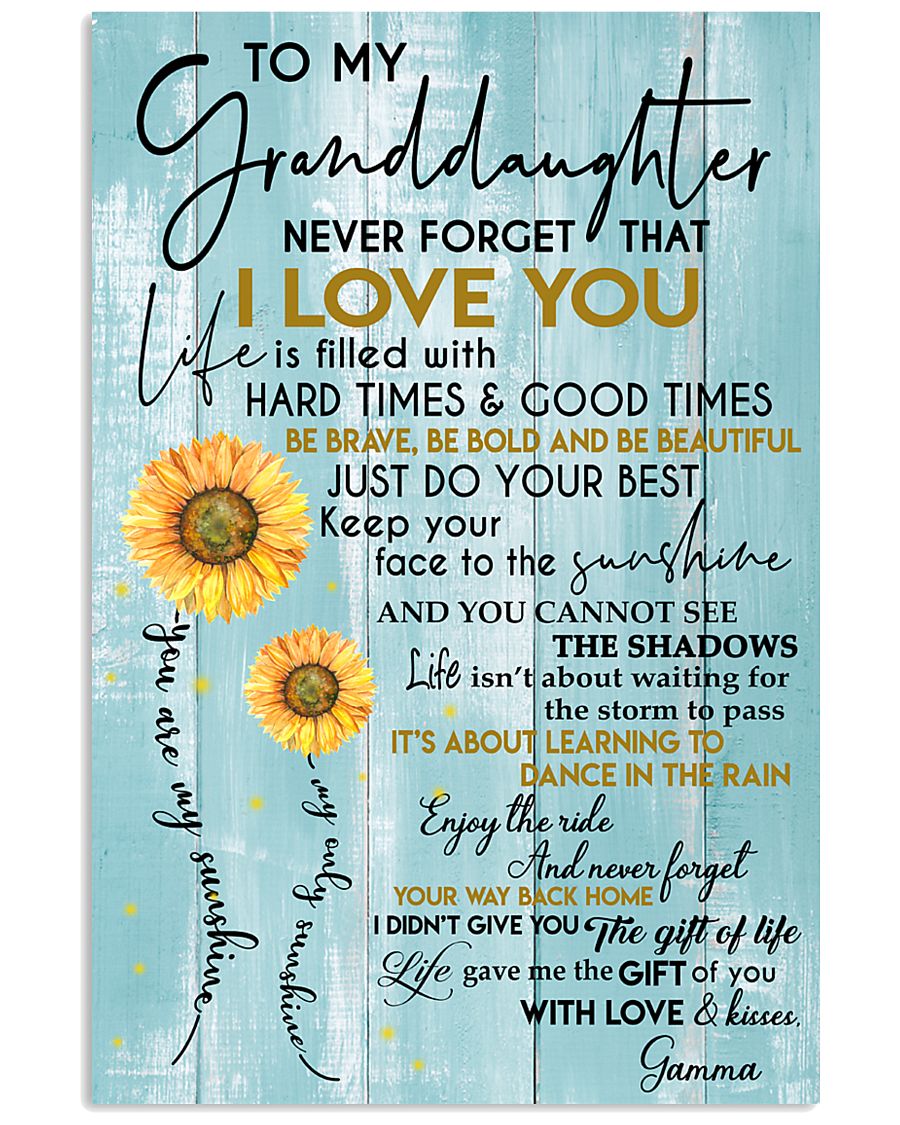 TO MY
Granddaughter
NEVER FORGET THAT
I LOVE YOU
Life is filled with
HARD TIMES & GOOD TIMES
BE BRAVE, BE BOLD AND BE BEAUTIFUL
JUST DO YOUR BEST
Keep your
face to the sunshine
AND YOU CANNOT SEE
THE SHADOWS
Life isn't about waiting for
the storm to pass
IT'S ABOUT LEARNING TO
DANCE IN THE RAIN
Enjoy the ride
And never forget
YOUR WAY BACK HOME
I DIDN'T GIVE YOU The gift of life
Life gave me the GIFT of you
WITH LOVE & kisses,
Gamma
you are my sunshine
my only sunshine